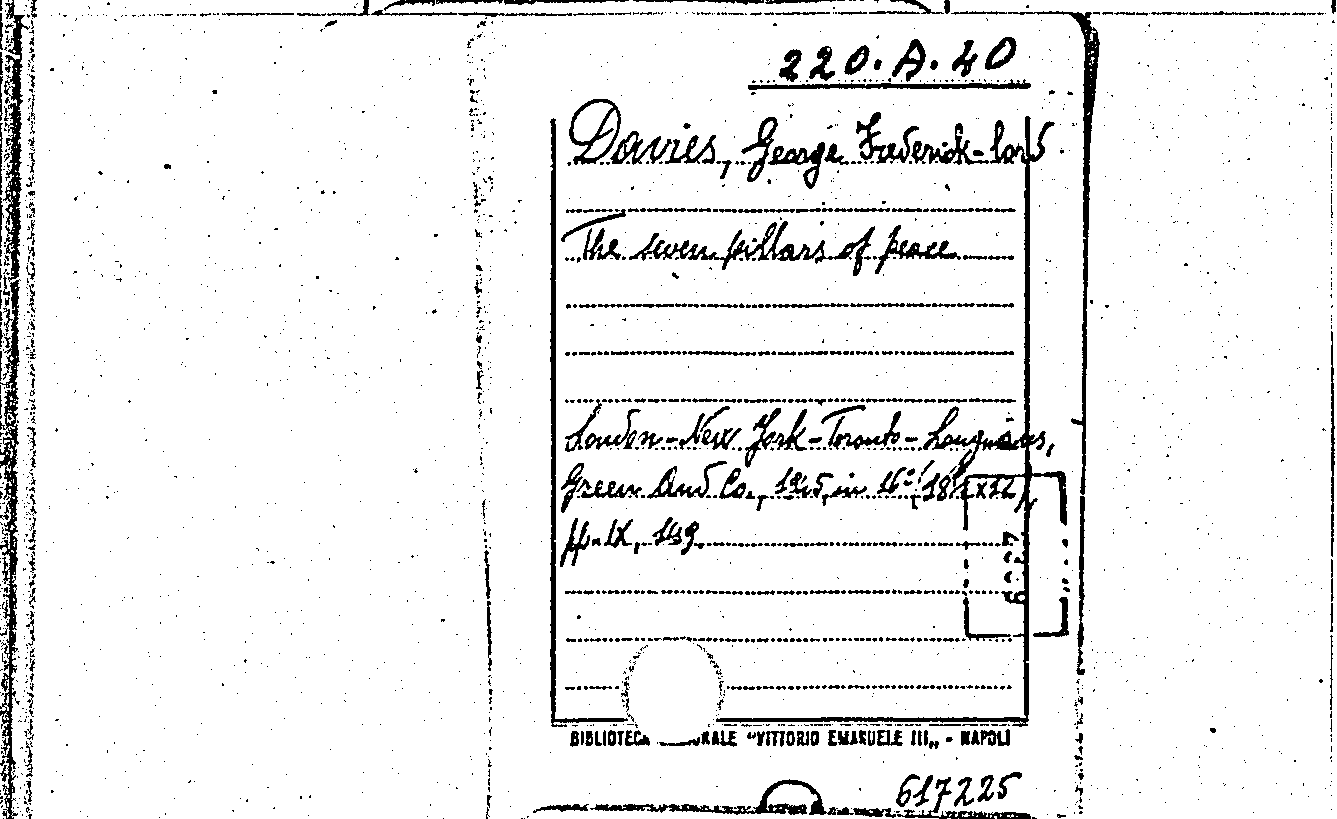 220.A.40
Davies, George Frederick-lord
The seven pillars of peace
London-New York-Toronto-Longmans,
Green And Co., 1945, in 16° (18½x12),
pp.IX, 149.
BIBLIOTECA "VITTORIO EMANUELE III„ - NAPOLI
617225